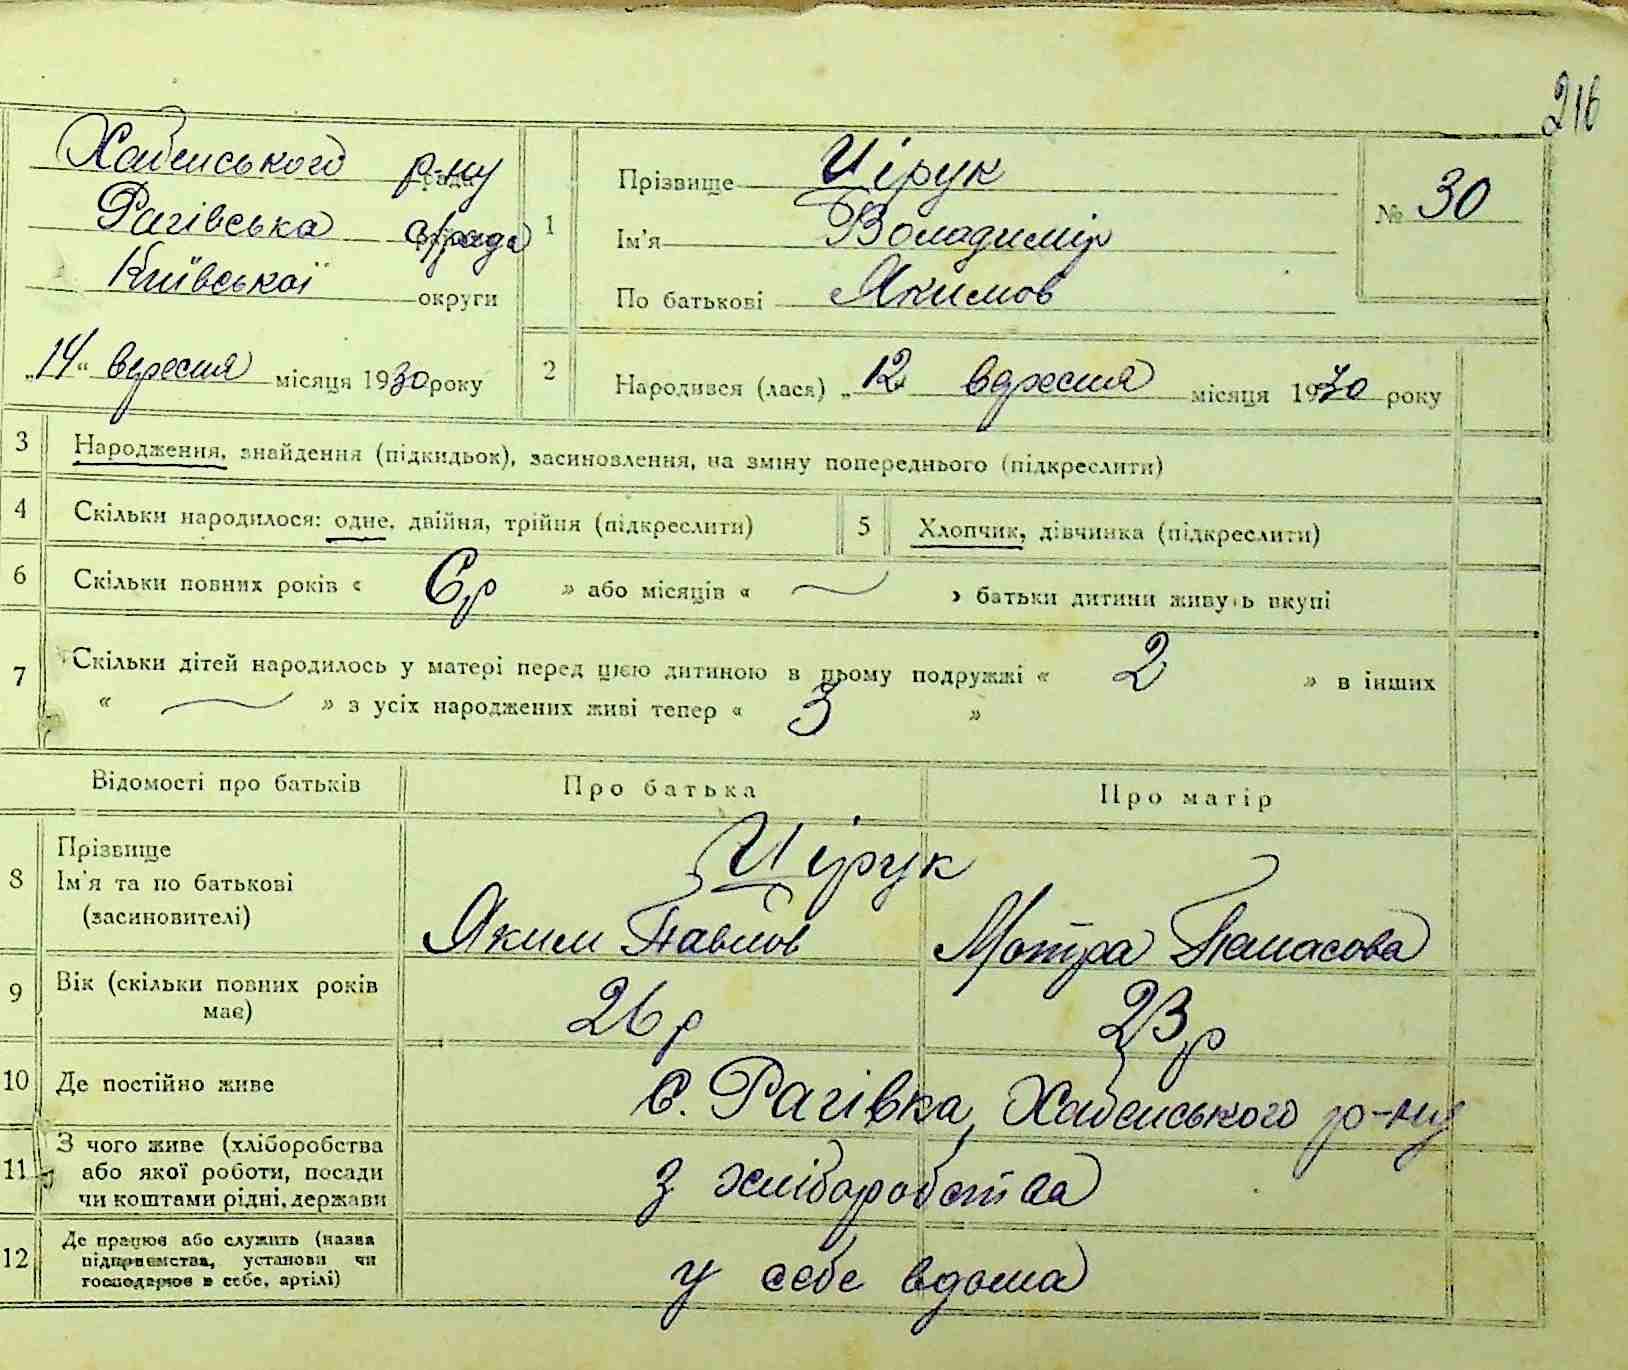 216
Хабенського р-ну
Рагівська с/рада
Київської округи
„14“ вересня місяця 1930 року
1 Прізвище Цірук
Ім'я Володимір
По батькові Якимов
№ 30
2 Народився (лася) „12 вересня місяця 1930 року
3 Народження, знайдення (підкидьок), засиновлення, на зміну попереднього (підкреслити)
4 Скільки народилося: одне, двійня, трійня (підкреслити) 5 Хлопчик, дівчинка (підкреслити)
6 Скільки повних років « 6 р » або місяців « — » батьки дитини живуть вкупі
7 Скільки дітей народилось у матері перед цією дитиною в цьому подружжі « 2 » в інших
« — » з усіх народжених живі тепер « 3 »
Відомості про батьків Про батька Про матір
8 Прізвище
Ім'я та по батькові
(засиновителі)
Цірук
Яким Павлов Мотра Панасова
9 Вік (скільки повних років
має)
26 р 23 р
10 Де постійно живе с. Рагівка, Хабенського р-ну
11 З чого живе (хліборобства
або якої роботи, посади
чи коштами рідні, держави
з хліборобства
12 Де працює або служить (назва
підприємства, установи чи
господарює в себе, артілі)
у себе вдома